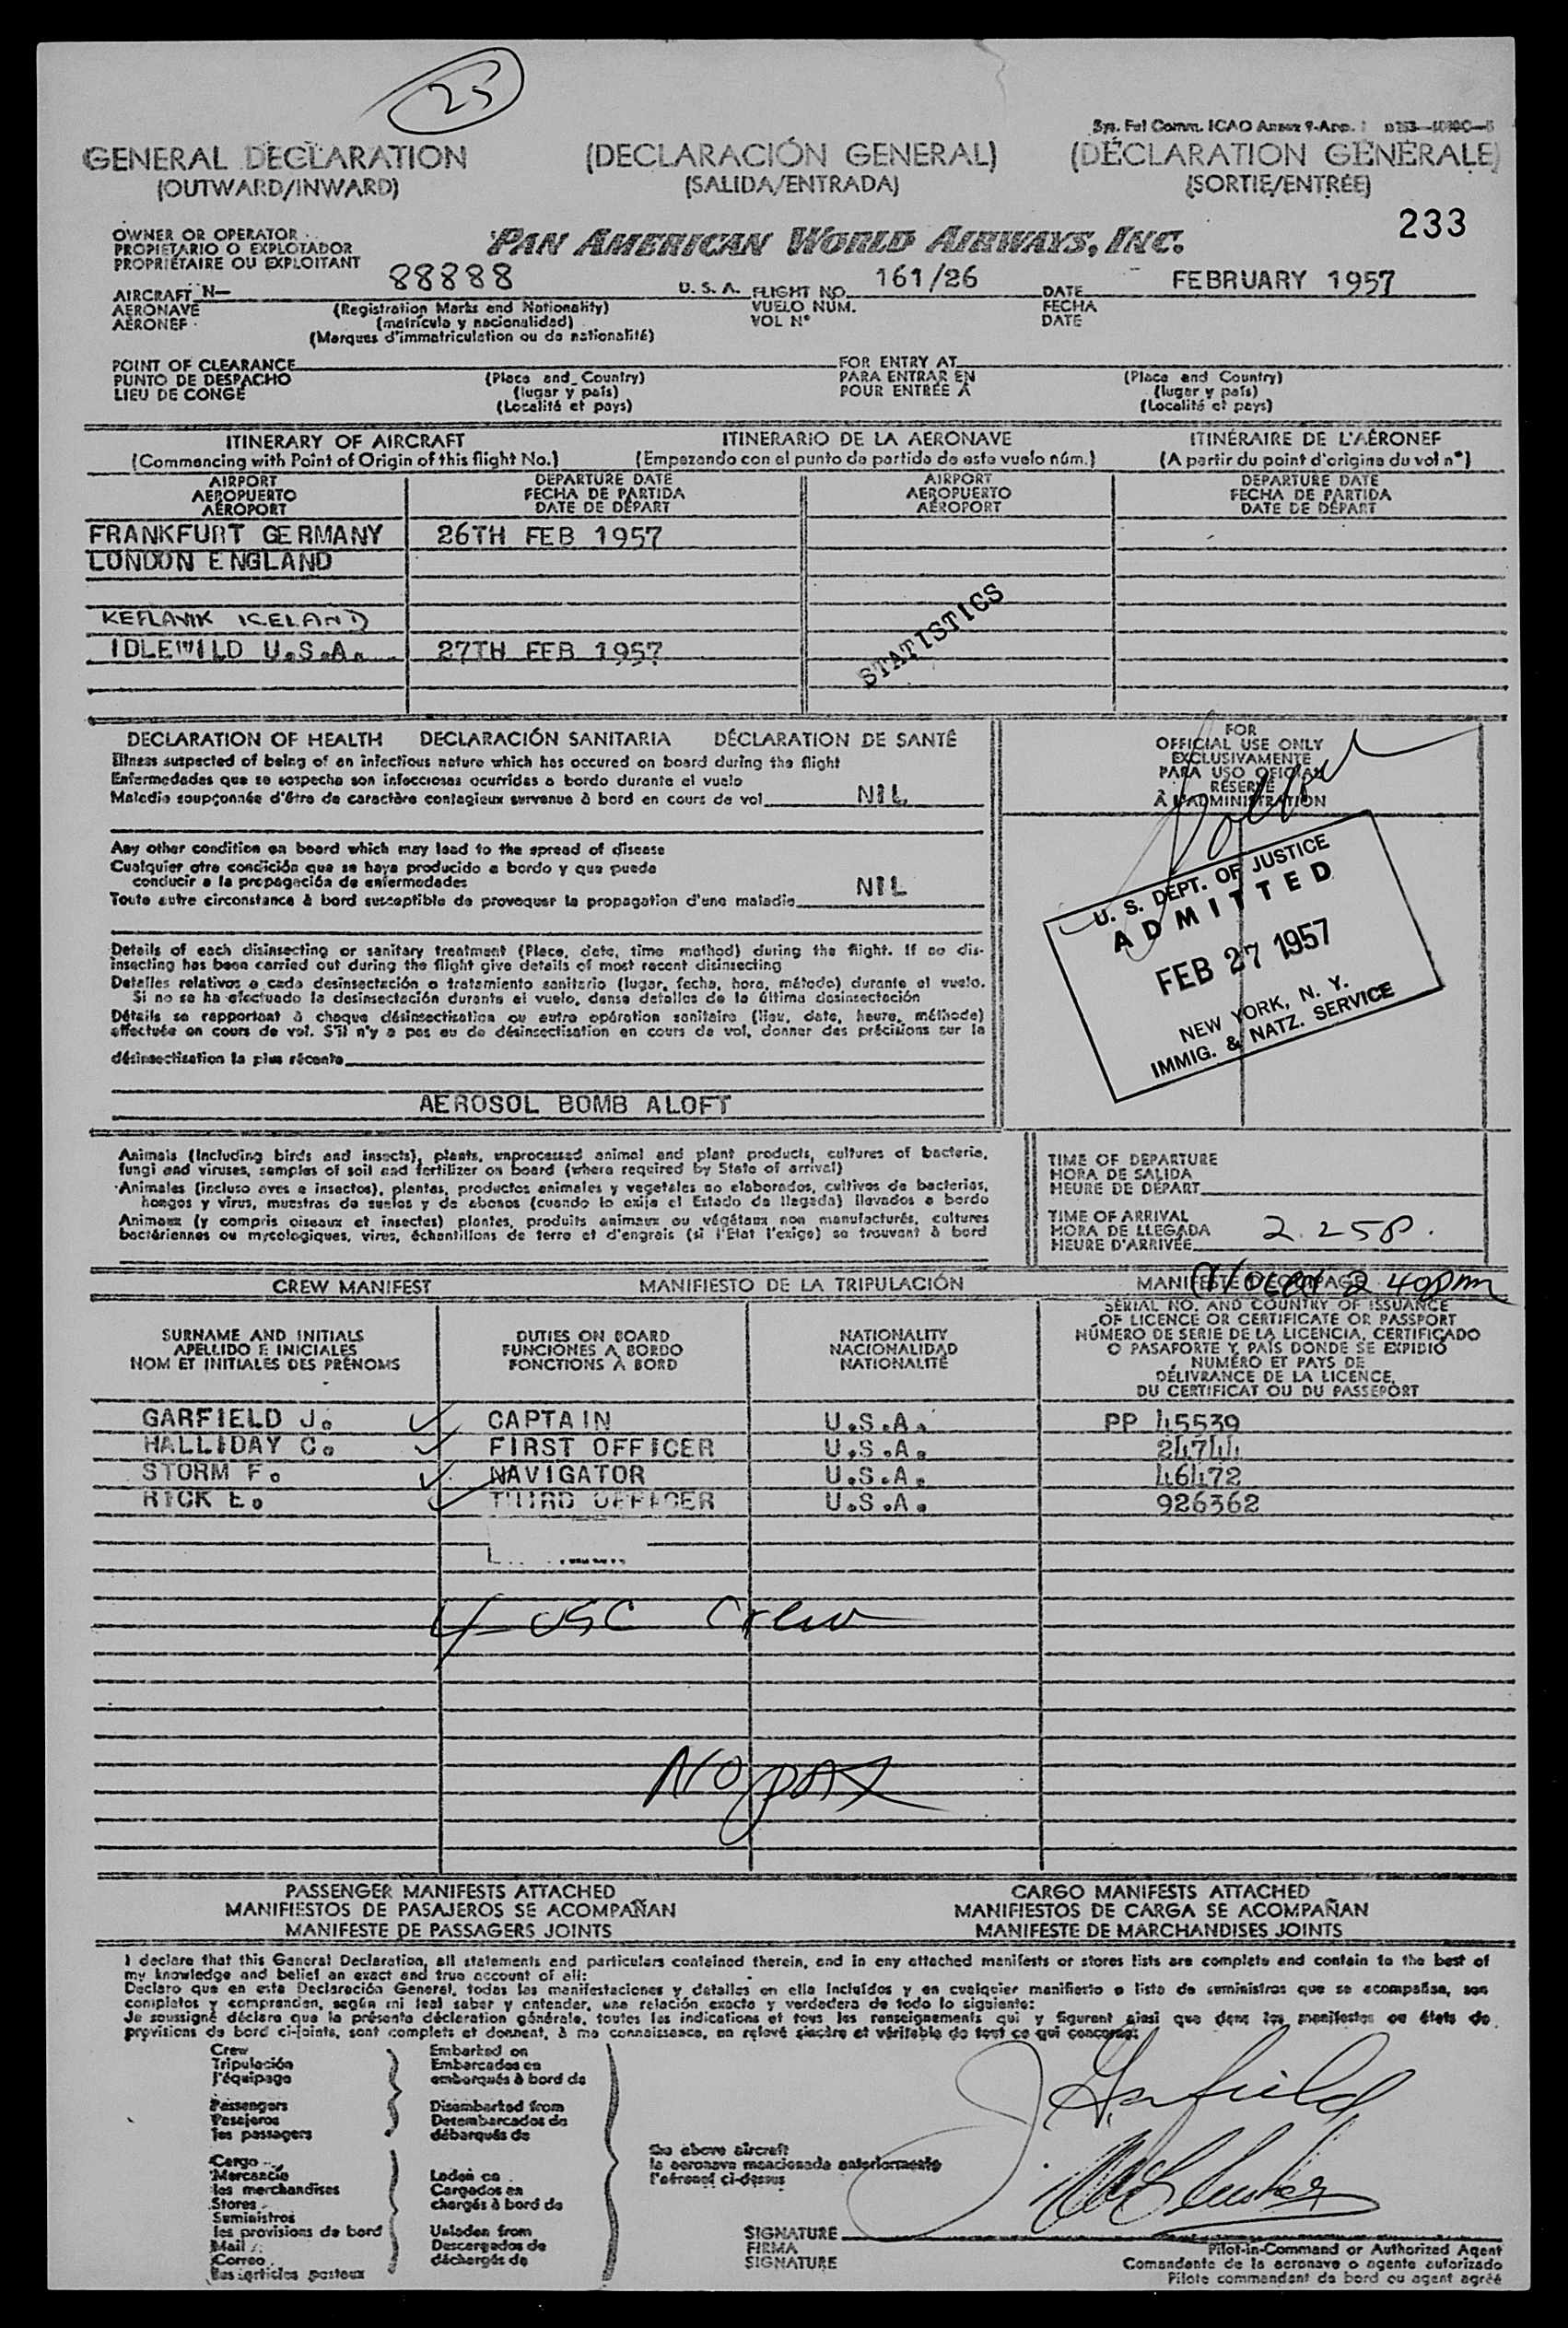 25
Sys. Ful Comm. ICAO Annex 9-App.
GENERAL DECLARATION (DECLARACIÓN GENERAL) (DÉCLARATION GÉNÉRALE)
(OUTWARD/INWARD) (SALIDA/ENTRADA) (SORTIE/ENTRÉE)
233
OWNER OR OPERATOR
PROPIETARIO O EXPLOTADOR
PROPRIÉTAIRE OU EXPLOITANT
PAN AMERICAN WORLD AIRWAYS, INC.
AIRCRAFT N— 88888 U. S. A. FLIGHT NO. 161/26 DATE FEBRUARY 1957
AERONAVE (Registration Marks and Nationality) VUELO NÚM. FECHA
AÉRONEF (matrícula y nacionalidad) VOL N° DATE
(Marques d'immatriculation ou de nationalité)
POINT OF CLEARANCE FOR ENTRY AT
PUNTO DE DESPACHO (Place and Country) PARA ENTRAR EN (Place and Country)
LIEU DE CONGÉ (lugar y país) POUR ENTRÉE À (lugar y país)
(Localité et pays) (Localité et pays)
ITINERARY OF AIRCRAFT ITINERARIO DE LA AERONAVE ITINÉRAIRE DE L'AÉRONEF
(Commencing with Point of Origin of this flight No.) (Empezando con el punto de partida de este vuelo núm.) (A partir du point d'origine du vol n°)
AIRPORT DEPARTURE DATE AIRPORT DEPARTURE DATE
AEROPUERTO FECHA DE PARTIDA AEROPUERTO FECHA DE PARTIDA
AÉROPORT DATE DE DÉPART AÉROPORT DATE DE DÉPART
FRANKFURT GERMANY 26TH FEB 1957
LONDON ENGLAND
KEFLAVIK ICELAND
IDLEWILD U.S.A. 27TH FEB 1957
STATISTICS
DECLARATION OF HEALTH DECLARACIÓN SANITARIA DÉCLARATION DE SANTÉ
Illness suspected of being of an infectious nature which has occured on board during the flight
Enfermedades que se sospecha son infecciosas ocurridas a bordo durante el vuelo
Maladie soupçonnée d'être de caractère contagieux survenue à bord en cours de vol NIL
Any other condition on board which may lead to the spread of disease
Cualquier otra condición que se haya producido a bordo y que pueda
conducir a la propagación de enfermedades
Toute autre circonstance à bord susceptible de provoquer la propagation d'une maladie NIL
Details of each disinsecting or sanitary treatment (Place, date, time method) during the flight. If no dis-
insecting has been carried out during the flight give details of most recent disinsecting
Detalles relativos a cada desinsectación o tratamiento sanitario (lugar, fecha, hora, método) durante el vuelo.
Si no se ha efectuado la desinsectación durante el vuelo, dense detalles de la última desinsectación
Détails se rapportant à chaque désinsectisation ou autre opération sanitaire (lieu, date, heure, méthode)
effectuée en cours de vol. S'il n'y a pas eu de désinsectisation en cours de vol, donner des précisions sur la
désinsectisation la plus récente
AEROSOL BOMB ALOFT
FOR
OFFICIAL USE ONLY
EXCLUSIVAMENTE
PARA USO OFICIAL
RÉSERVÉ
À L'ADMINISTRATION
U. S. DEPT. OF JUSTICE
ADMITTED
FEB 27 1957
NEW YORK, N. Y.
IMMIG. & NATZ. SERVICE
Animals (Including birds and insects), plants, unprocessed animal and plant products, cultures of bacteria,
fungi and viruses, samples of soil and fertilizer on board (where required by State of arrival)
Animales (incluso aves e insectos), plantas, productos animales y vegetales no elaborados, cultivos de bacterias,
hongos y virus, muestras de suelos y de abonos (cuando lo exija el Estado de llegada) llevados a bordo
Animaux (y compris oiseaux et insectes) plantes, produits animaux ou végétaux non manufacturés, cultures
bactériennes ou mycologiques, virus, échantillons de terre et d'engrais (si l'Etat l'exige) se trouvant à bord
TIME OF DEPARTURE
HORA DE SALIDA
HEURE DE DÉPART
TIME OF ARRIVAL
HORA DE LLEGADA 2.25P.
HEURE D'ARRIVÉE
CREW MANIFEST MANIFIESTO DE LA TRIPULACIÓN MANIFESTE
2 40pm
SURNAME AND INITIALS
APELLIDO E INICIALES
NOM ET INITIALES DES PRÉNOMS
DUTIES ON BOARD
FUNCIONES A BORDO
FONCTIONS À BORD
NATIONALITY
NACIONALIDAD
NATIONALITÉ
SERIAL NO. AND COUNTRY OF ISSUANCE
OF LICENCE OR CERTIFICATE OR PASSPORT
NÚMERO DE SERIE DE LA LICENCIA, CERTIFICADO
O PASAPORTE Y PAÍS DONDE SE EXPIDIÓ
NUMÉRO ET PAYS DE
DÉLIVRANCE DE LA LICENCE,
DU CERTIFICAT OU DU PASSEPORT
GARFIELD J. CAPTAIN U.S.A. PP 45539
HALLIDAY C. FIRST OFFICER U.S.A. 24744
STORM F. NAVIGATOR U.S.A. 46472
RICK E. THIRD OFFICER U.S.A. 926362
4 USC Crew
NO PAX
PASSENGER MANIFESTS ATTACHED CARGO MANIFESTS ATTACHED
MANIFIESTOS DE PASAJEROS SE ACOMPAÑAN MANIFIESTOS DE CARGA SE ACOMPAÑAN
MANIFESTE DE PASSAGERS JOINTS MANIFESTE DE MARCHANDISES JOINTS
I declare that this General Declaration, all statements and particulars contained therein, and in any attached manifests or stores lists are complete and contain to the best of
my knowledge and belief an exact and true account of all:
Declaro que en esta Declaración General, todas las manifestaciones y detalles en ella incluídos y en cualquier manifiesto o lista de suministros que se acompañan, son
completos y comprenden, según mi leal saber y entender, una relación exacta y verdadera de todo lo siguiente:
Je soussigné déclare que la présente déclaration générale, toutes les indications et tous les renseignements qui y figurent ainsi que dans les manifestes ou états de
provisions de bord ci-joints, sont complets et donnent, à ma connaissance, un relevé sincère et véritable de tout ce qui concerne:
Crew Embarked on
Tripulación Embarcados en
l'équipage embarqués à bord de
Passengers Disembarked from
Pasajeros Desembarcados de
les passagers débarqués de
Cargo
Mercancía Laden on
les merchandises Cargados en
Stores chargés à bord de
Suministros
les provisions de bord Unladen from
Mail Descargados de
Correo déchargés de
les articles postaux
the above aircraft
la aeronave mencionada anteriormente
l'aéronef ci-dessus
J. Garfield
SIGNATURE
FIRMA
SIGNATURE
Pilot-in-Command or Authorized Agent
Comandante de la aeronave o agente autorizado
Pilote commandant de bord ou agent agréé